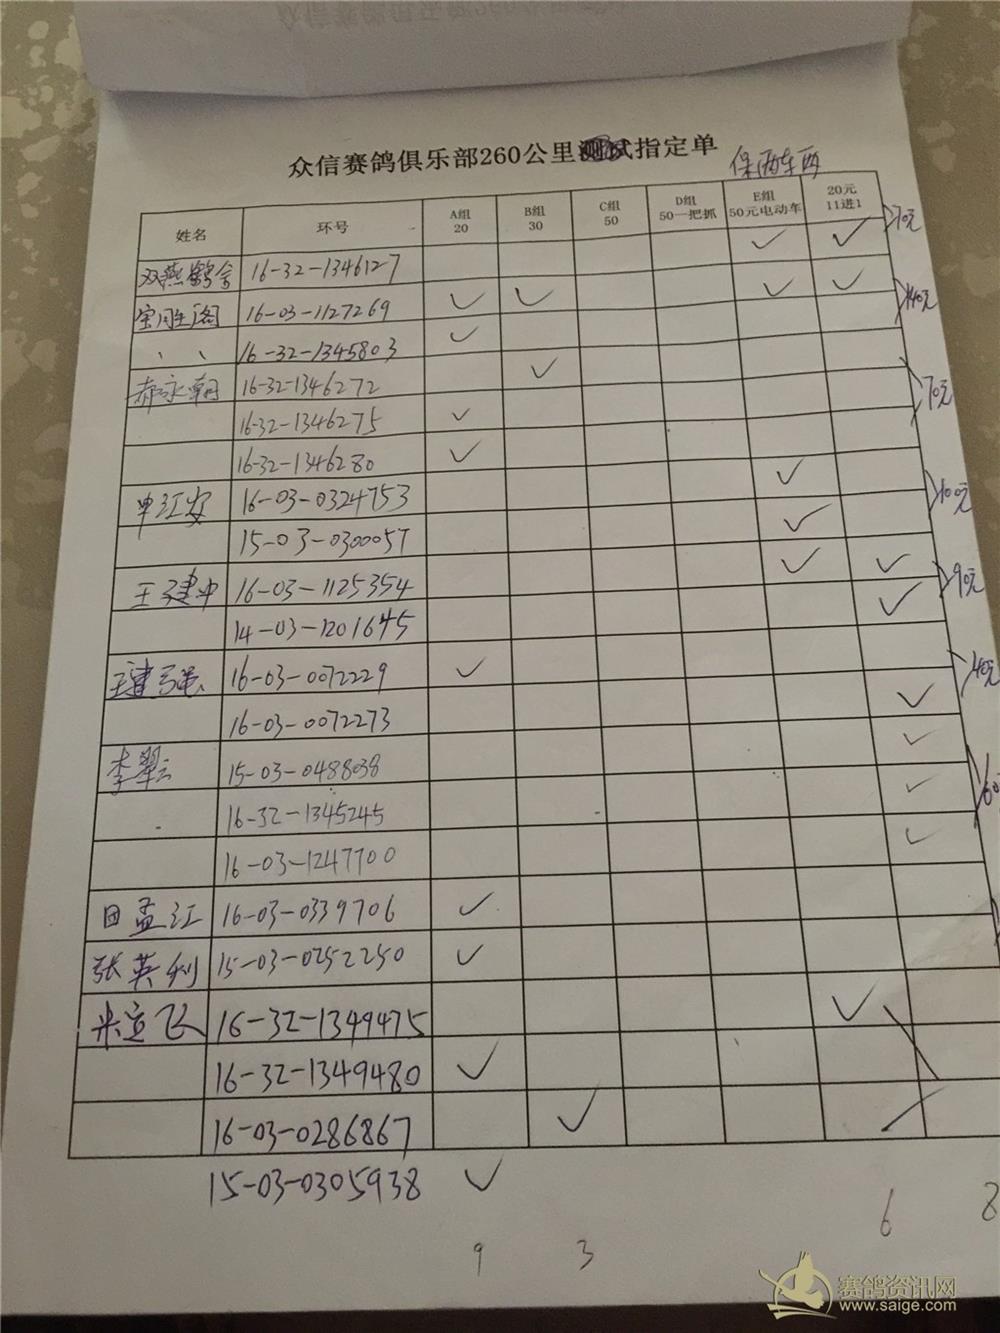 众信赛鸽俱乐部260公里测试指定单
保两车两
姓名 环号 A组 20 B组 30 C组 50 D组 50一把抓 E组 50元电动车 20元 11进1
双燕鸽舍 16-32-1346127 ✓ ✓ 70元
宝用生阁 16-03-1127269 ✓ ✓ ✓ ✓ 140元
、、 16-32-1345803 ✓
郝永朝 16-32-1346272 ✓ 70元
16-32-1346275 ✓
16-32-1346280 ✓
申江安 16-03-0324753 ✓ 100元
15-03-0300057 ✓
王建中 16-03-1125354 ✓ ✓ 90元
14-03-1201645 ✓
王建强 16-03-0072229 ✓ 40元
16-03-0072273 ✓
李翠云 15-03-0488038 ✓ 60
16-32-1345245 ✓
16-03-1247700 ✓
田孟江 16-03-0339706 ✓
张英利 15-03-0252250 ✓
米立飞 16-32-1349475 ✓
16-32-1349480 ✓
16-03-0286867 ✓
15-03-0305938 ✓
9 3 6 8
赛鸽资讯网
www.saige.com